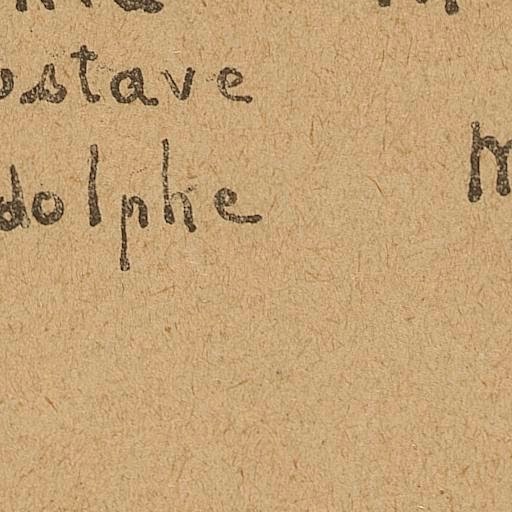 ustave
dolphe M